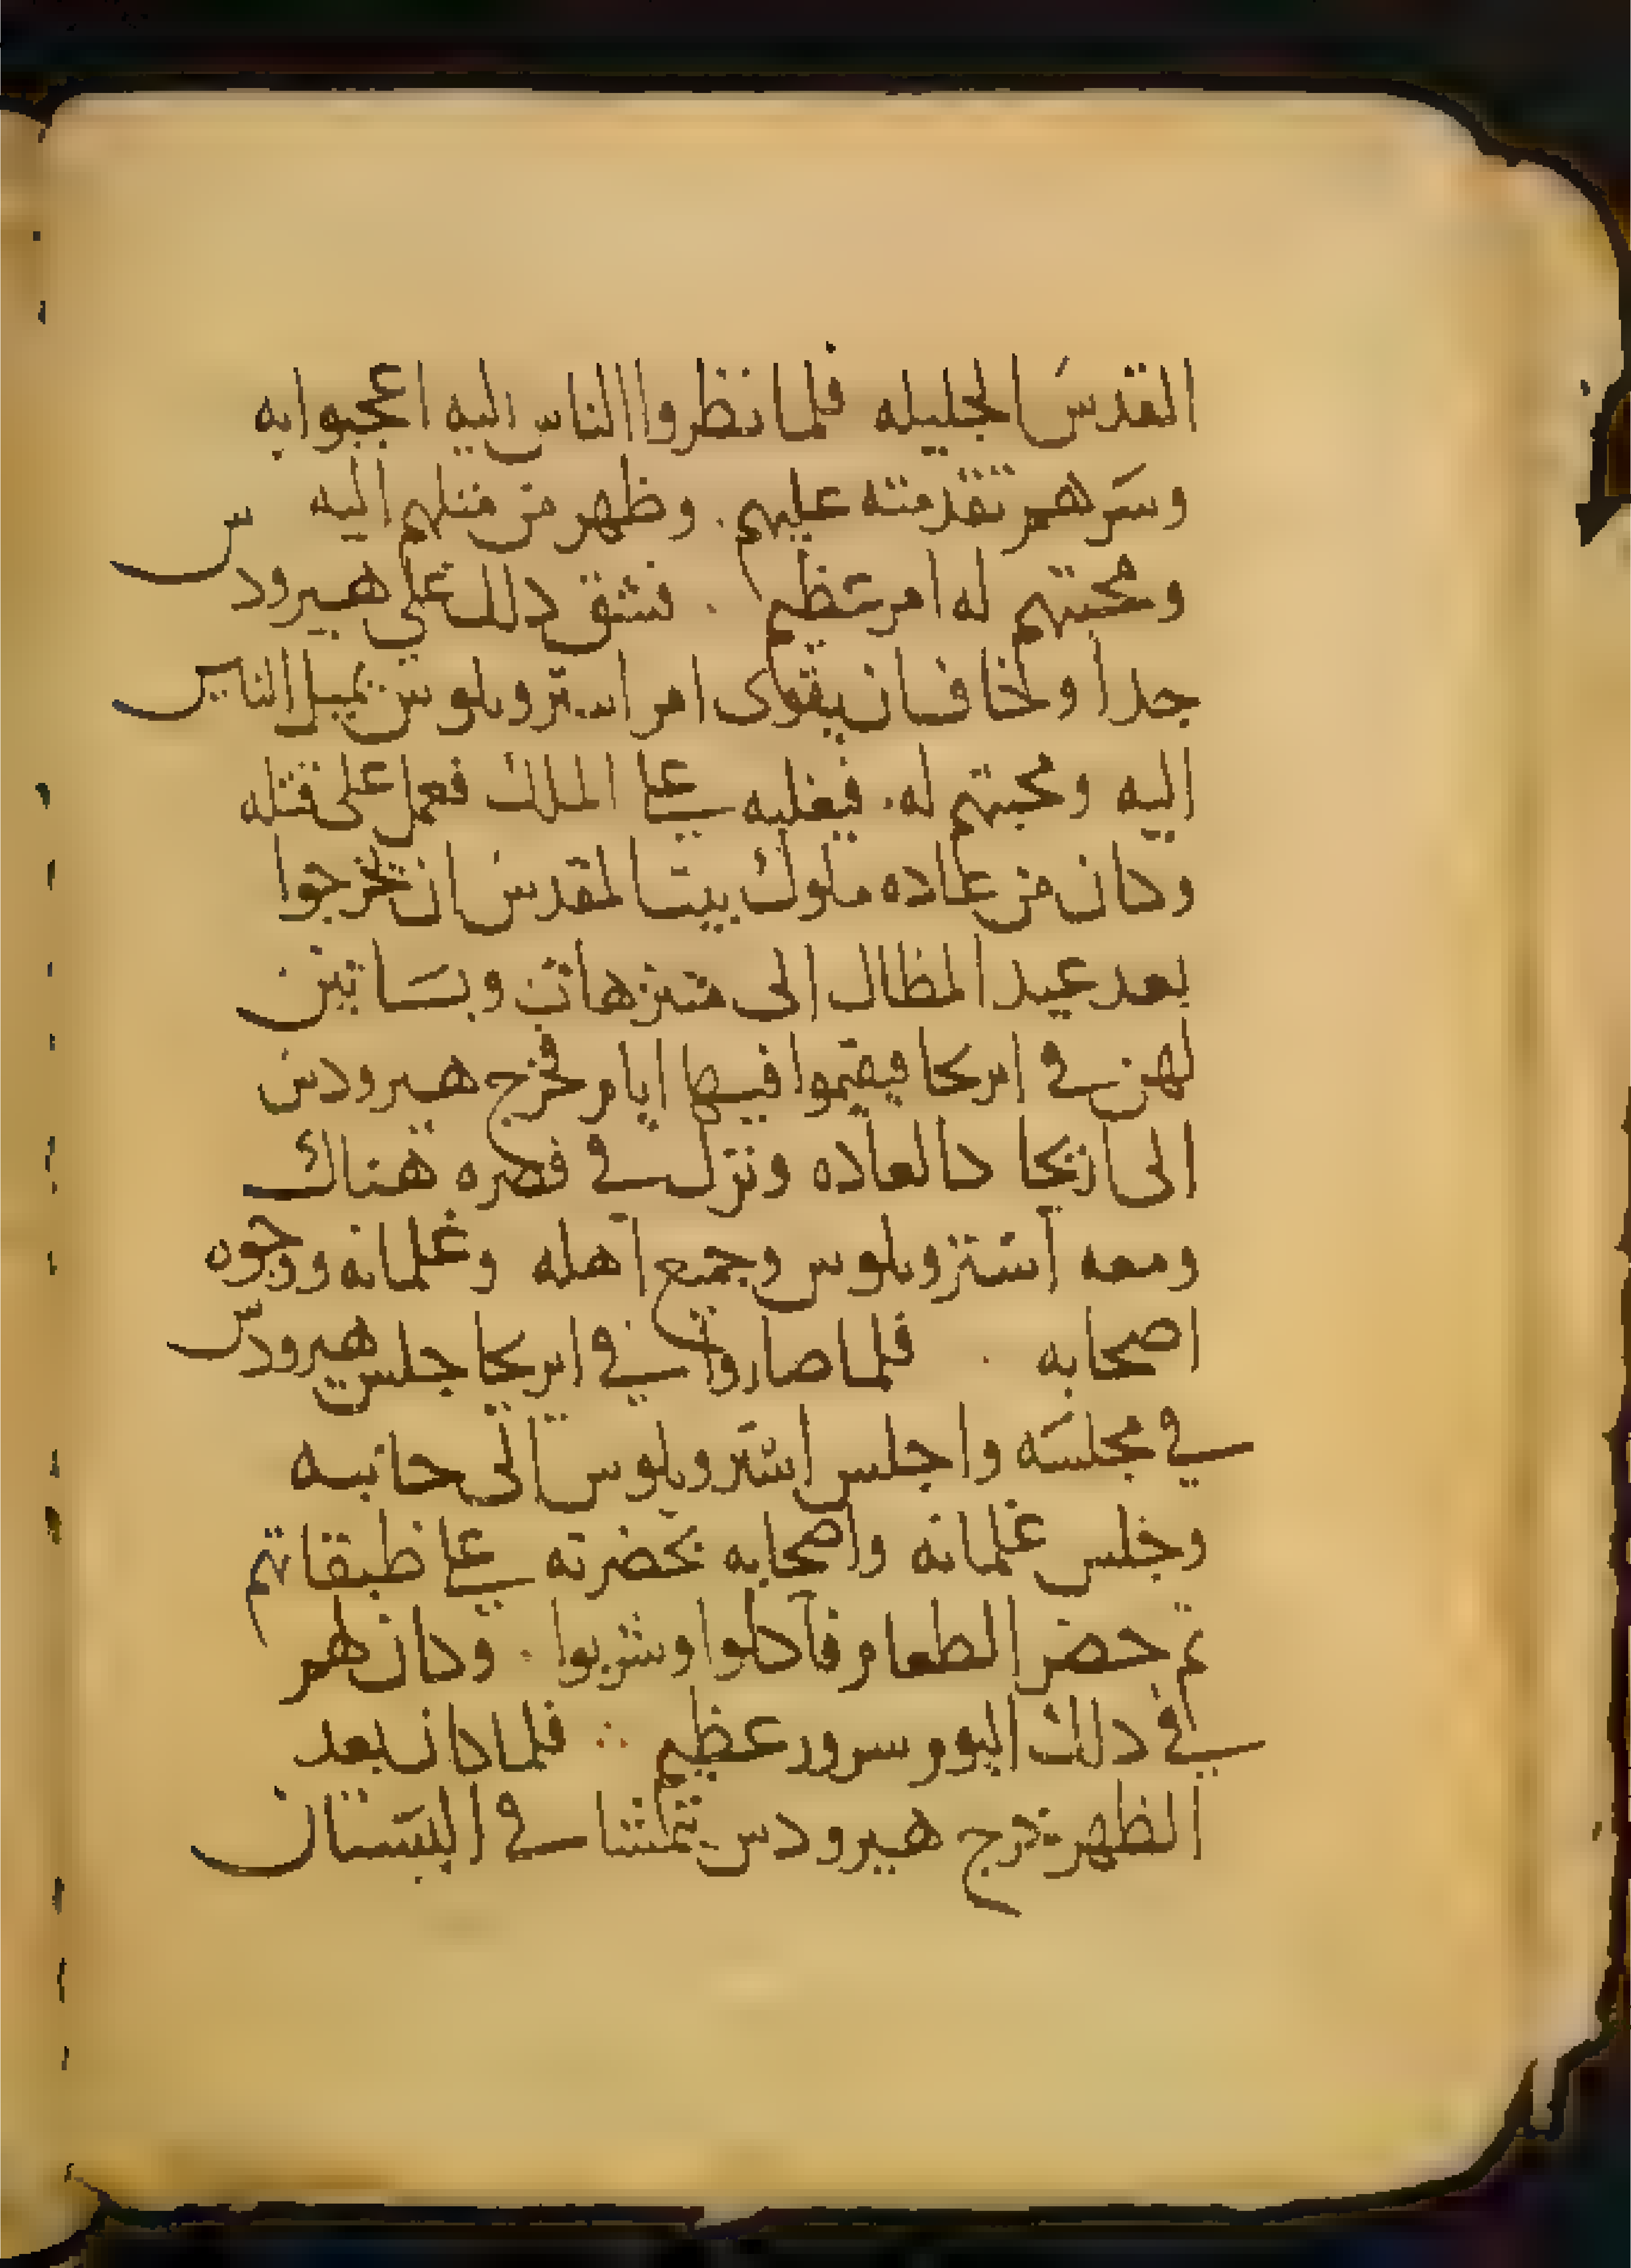 القدس الجليله فلما نظروا الناس اليه اعجبوا به
وسرهم تقدمته عليهم. وظهر من ميلهم اليه
ومحبتهم له امر عظيم. فشق دلك على هيرودس
جدا وخاف ان يقوى امر استروبلوس بميل الناس
اليه ومحبتهم له. فيغلبه على الملك فعمل على قتله
وكان من عاده ملوك بيت المقدس ان يخرجوا
بعد عيد المظال الى متنزهات وبساتين
لهن في اريحا فيقيموا فيها ايام فخرج هيرودس
الى اريحا كالعاده ونزل في قصره هناك
ومعه استروبلوس وجميع اهله وغلمانه ووجوه
اصحابه. فلما صاروا في اريحا جلس هيرودس
في مجلسه واجلس استروبلوس الى جانبه
وجلس غلمانه واصحابه بحضرته على طبقاتهم
ثم حضر الطعام فاكلوا وشربوا. وكان لهم
في دلك اليوم سرور عظيم ∴ فلما كان بعد
الظهر خرج هيرودس يتمشا في البستان